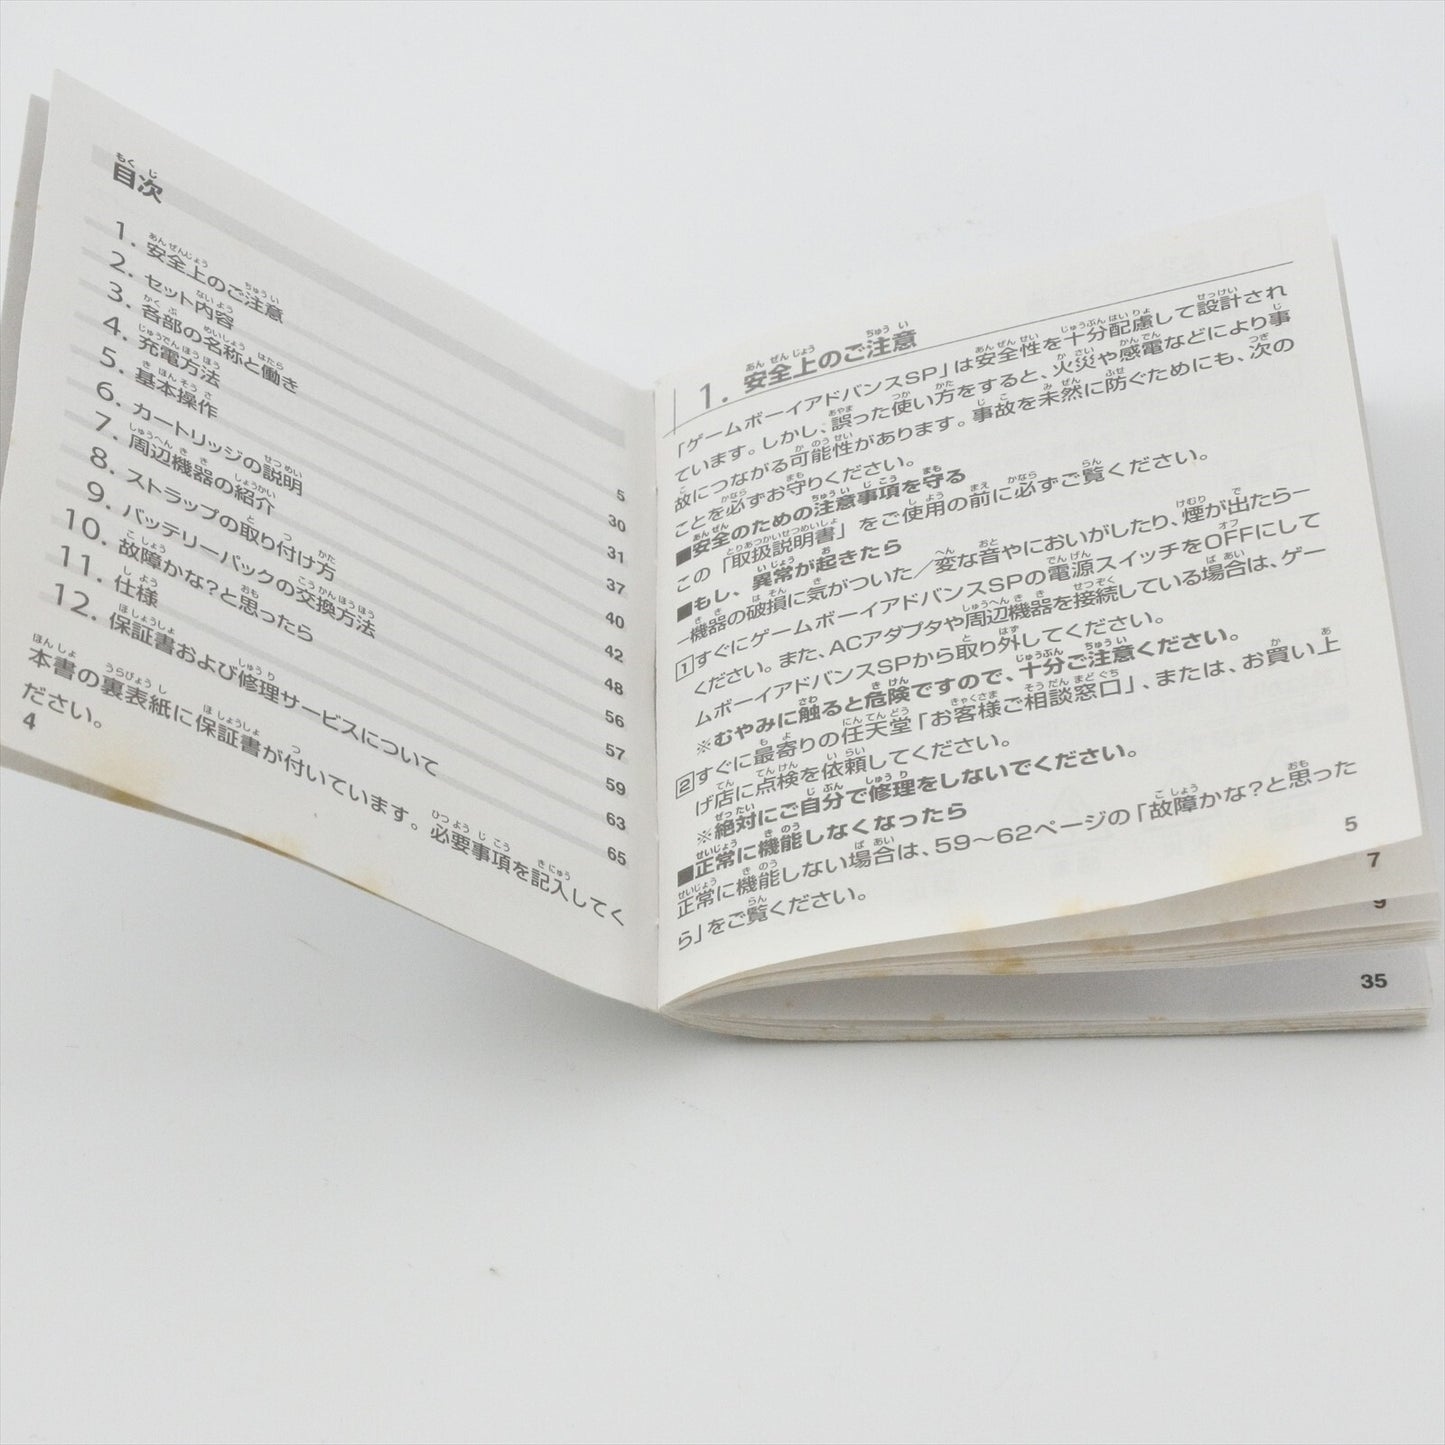 目次
1. 安全上のご注意 5
2. セット内容 30
3. 各部の名称と働き 31
4. 充電方法 37
5. 基本操作 40
6. カートリッジの説明 42
7. 周辺機器の紹介 48
8. ストラップの取り付け方 56
9. バッテリーパックの交換方法 57
10. 故障かな?と思ったら 59
11. 仕様 63
12. 保証書および修理サービスについて 65
本書の裏表紙に保証書が付いています。必要事項を記入してく
ださい。
4
1. 安全上のご注意
「ゲームボーイアドバンスSP」は安全性を十分配慮して設計され
ています。しかし、誤った使い方をすると、火災や感電などにより事
故につながる可能性があります。事故を未然に防ぐためにも、次の
ことを必ずお守りください。
■安全のための注意事項を守る
この「取扱説明書」をご使用の前に必ずご覧ください。
■もし、異常が起きたら
−機器の破損に気がついた/変な音やにおいがしたり、煙が出たら−
1 すぐにゲームボーイアドバンスSPの電源スイッチをOFFにして
ください。また、ACアダプタや周辺機器を接続している場合は、ゲー
ムボーイアドバンスSPから取り外してください。
※むやみに触ると危険ですので、十分ご注意ください。
2 すぐに最寄りの任天堂「お客様ご相談窓口」、または、お買い上
げ店に点検を依頼してください。
※絶対にご自分で修理をしないでください。
■正常に機能しなくなったら
正常に機能しない場合は、59〜62ページの「故障かな?と思った
ら」をご覧ください。
5
7
9
35